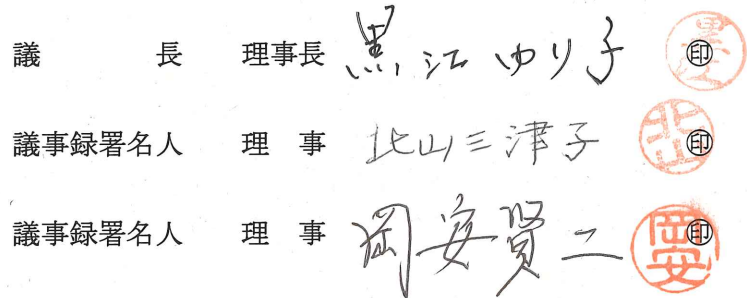 議長 理事長 黒江ゆり子 ㊞
議事録署名人 理事 北山三津子 ㊞ 北山
議事録署名人 理事 岡安賢二 ㊞ 岡安